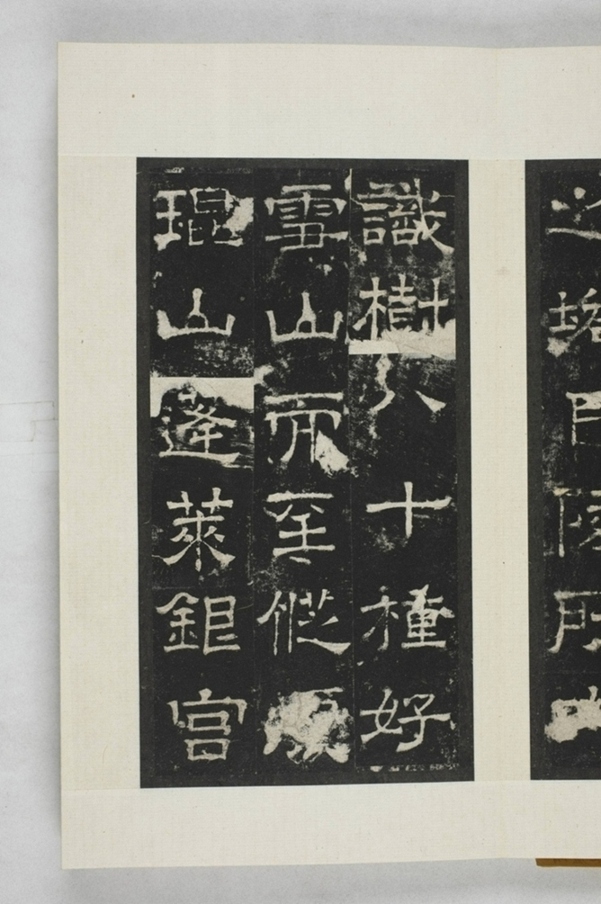 識樹八十種好
雪山而至從
琨山蓬萊銀宮
之塔